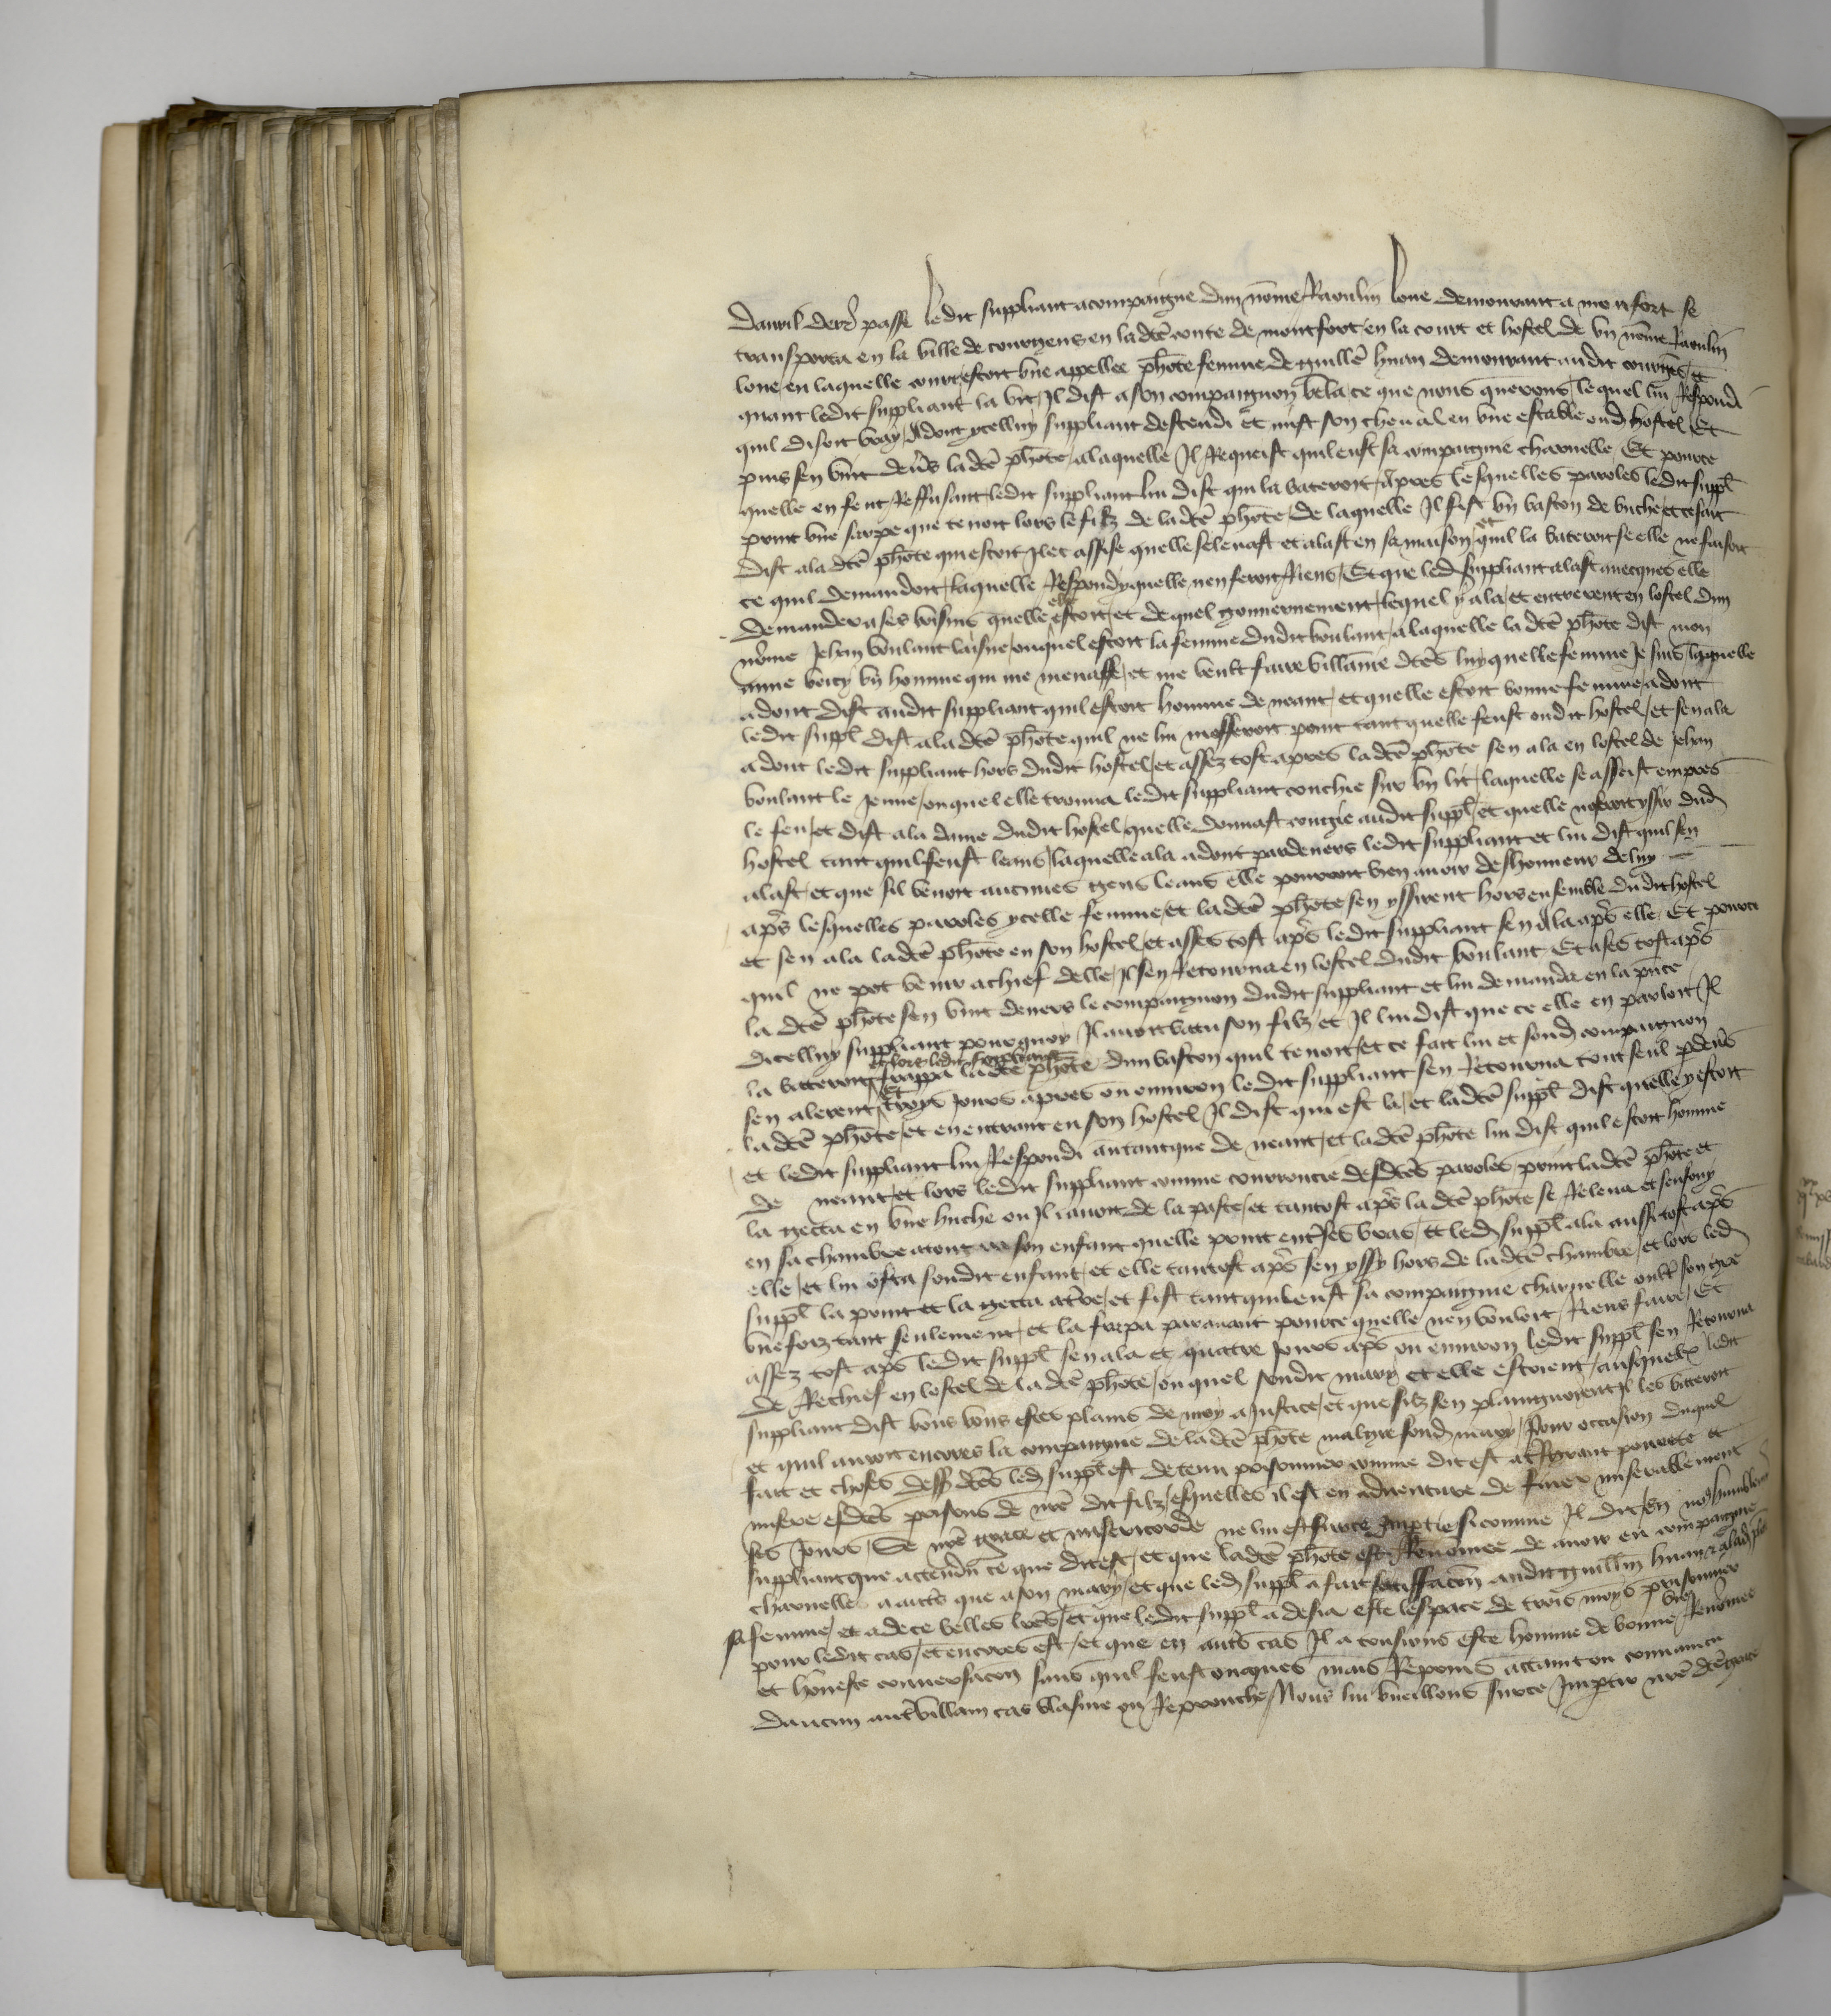 Dauril derr passe ledit suppliant acompaigne dun nome Raoulin loue demourant a monfort se
transporta en la ville de courgens en ladte conte de montfort en la court et hostel de vn nome Raoulin
loue en laquelle court estoit vne appellee phote femme de guille huan demourant audit et
quant ledit suppliant la vit Il dist a son compaignon vela ce que nous querons lequel lui Respondi
quil disoit vray Adont ycelluy suppliant descendi et mist son cheual en vne estable oud hostel Et
puis sen vint deus ladte phote a laquelle Il Requist quil eust sa compaignie charnelle Et pource
quelle en feut Reffusant ledit suppliant lui dist qui la bateroit Apres lesquelles paroles ledit suppl
print vne sarpe que tenoit lors le filz de ladte phote de laquelle Il fist vn baston de buche et ce fait
dist a la dte phote qui estoit Ilec assise quelle se leuast et alast en sa maison et quil la bateroit se elle ne faisoit
ce quil demandoit laquelle Respondy quelle nen feroit Riens Et que led suppliant alast auecques elle
demander a ses voisins quelle elle estoit et de quel gouuernement lequel y ala et entrerent en lostel dun
nome Jehan boulant laisne ouquel estoit la femme dudit boulant a laquelle la dte phote dist mon
ame veez cy vn homme qui me menasse et me veult faire villanie dtes luy quelle femme Je suis laquelle
adont dist audit suppliant quil estoit homme de neant et quelle estoit bonne femme adont
ledit suppl dist a la dte phote quil ne lui mefferoit point tant quelle feust oudit hostel et sen ala
adont ledit suppliant hors dudit hostel et assez tost apres ladte phote sen ala en lostel de Jehan
boulant le Jeune ouquel elle trouua ledit suppliant couchie sur vn lit laquelle se asseist empres
le feu et dist a la dame dudit hostel quelle donnast congie audit suppl et quelle noseroit yssir dud
hostel tant quil feust leans laquelle ala adont pardeuers ledit suppliant et lui dist quil sen
alast et que sil venoit aucunes gens leans elle pourroit bien auoir deshonneur de luy
apres lesquelles paroles ycelle femme et ladte phote sen yssirent hors ensemble dudit hostel
et sen ala ladte phote en son hostel et asses tost apres ledit suppliant sen ala apres elle Et pource
quil ne pot venir a chief delle Il sen Retourna en lostel dudit boulant Et ases tost apres
la dte phote sen vint deuers le compaignon dudit suppliant et lui demanda en la pnce
dicelluy suppliant pour quoy Il auoit batu son filz et Il lui dist que ce elle en parloit Il
la bateroit et lors ledit suppliant frappa ladte phote dun baston quil tenoit et ce fait lui et sond compaignon
sen alerent Et troys Jours apres ou enuiron ledit suppliant sen Retourna tout seul pdeus
ladte phote et en entrant en son hostel Il dist qui est la et ladte suppl dist quelle y estoit
et ledit suppliant lui Respondi autant que de neant et ladte phote lui dist quil estoit homme
de neant et lors ledit suppliant comme courroucie desdtes paroles print ladte phote et
la getta en vne huche ou Il auoit de la paste et tantost apres la dte phote se Releua et senfouy
en sa chambre atout son enfant quelle print ent ses bras et led suppl ala aussi tost apres
elle et lui osta sondit enfant et elle tantost apres sen yssy hors de ladte chambre et lors led
suppl la print et la getta a tre et fist tant quil eust sa compaignie charnelle oult son gre
vne foiz tant seulement et la frapa parauant pource quelle nen vouloit Riens faire Et
assez tost apres ledit suppl sen ala et quatre Jours apres ou enuiron ledit suppl sen Retourna
de Rechief en lostel de ladte phote ouquel sondit mary et elle estoient ausquelx ledit
suppliant dist vous vous estes plains de moy a Justice et que silz sen plaingnoient Il les bateroit
et quil auroit encores la compaignie de ladte phote malgre sond mary Pour occasion duquel
fait et choses dessdtes led suppl est detenu prisonnier comme dit est a grant pourete et
misere esdtes prisons de nre dit filz esquelles il est en aduenture de finer miserablement
ses Jours Se nre grace et misericorde ne lui est surce Imptie si comme Il dit En humblemt
suppliant que attendu ce que dit est et que ladte phote est Renomee de auoir eu compaignie
charnelle a auts que a son mary et que led suppl a fait satisffacon audit guillm huan et a lad
sa femme et a de ce belles lres et que ledit suppl a desia este lespace de trois moys prisonnier
pour ledit cas et encores est et que en auts cas Il a tousiours este homme de bonne vie Renomee
et honeste conuersacon sans quil feust oncques mais Reprins actaint ou conuaincu
daucun aut villain cas blasme ou Reprouche Nous lui vueillons surce Imptir nre dte grace